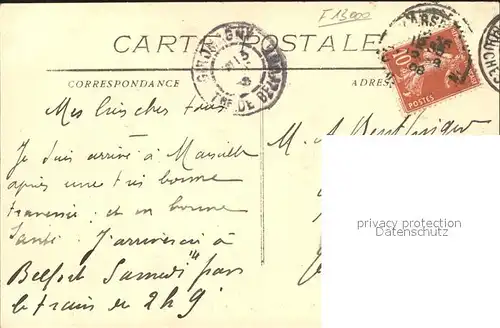 F 13000
CARTE POSTALE
CORRESPONDANCE
ADRES
GIROMAGNY
TRE DE BELFORT
10
POSTES
Mes biens chers tous
Je suis arrivé à Marseille
après une très bonne
traversée : et en bonne
Santé. J'arriverai à
Belfort Samedi par
le train de 2 h 9
M. A
privacy protection
Datenschutz